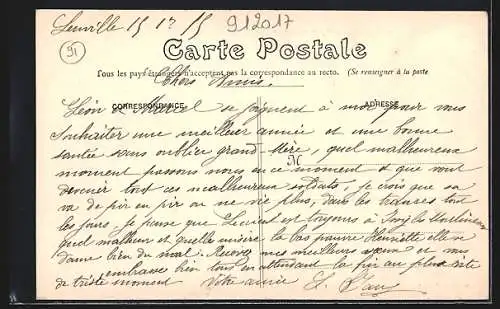 Leuville 15 12 15
912017
91
Carte Postale
Tous les pays étrangers n'acceptent pas la correspondance au recto. (Se renseigner à la poste
Chers Amis.
CORRESPONDANCE ADRESSE
Léon Marcel se joignent à moi pour vous
souhaiter une meilleur année et une bonne
santée sans oublier grand-Mère, quel malheureux
M
moment passons nous en ce moment & que vont
devenir tout ces malheureux soldats, je crois que sa
va de pir en pir on ne vie plus, dans les tous
les jours. Je pense que est toujours à
quel malheur et quelle misère la bas pauvre Henriette elle se
donne bien du mal. Recevez mes meilleurs et vous
embrasse bien tous en attendant la fin au plus vite
de triste moment Votre amie